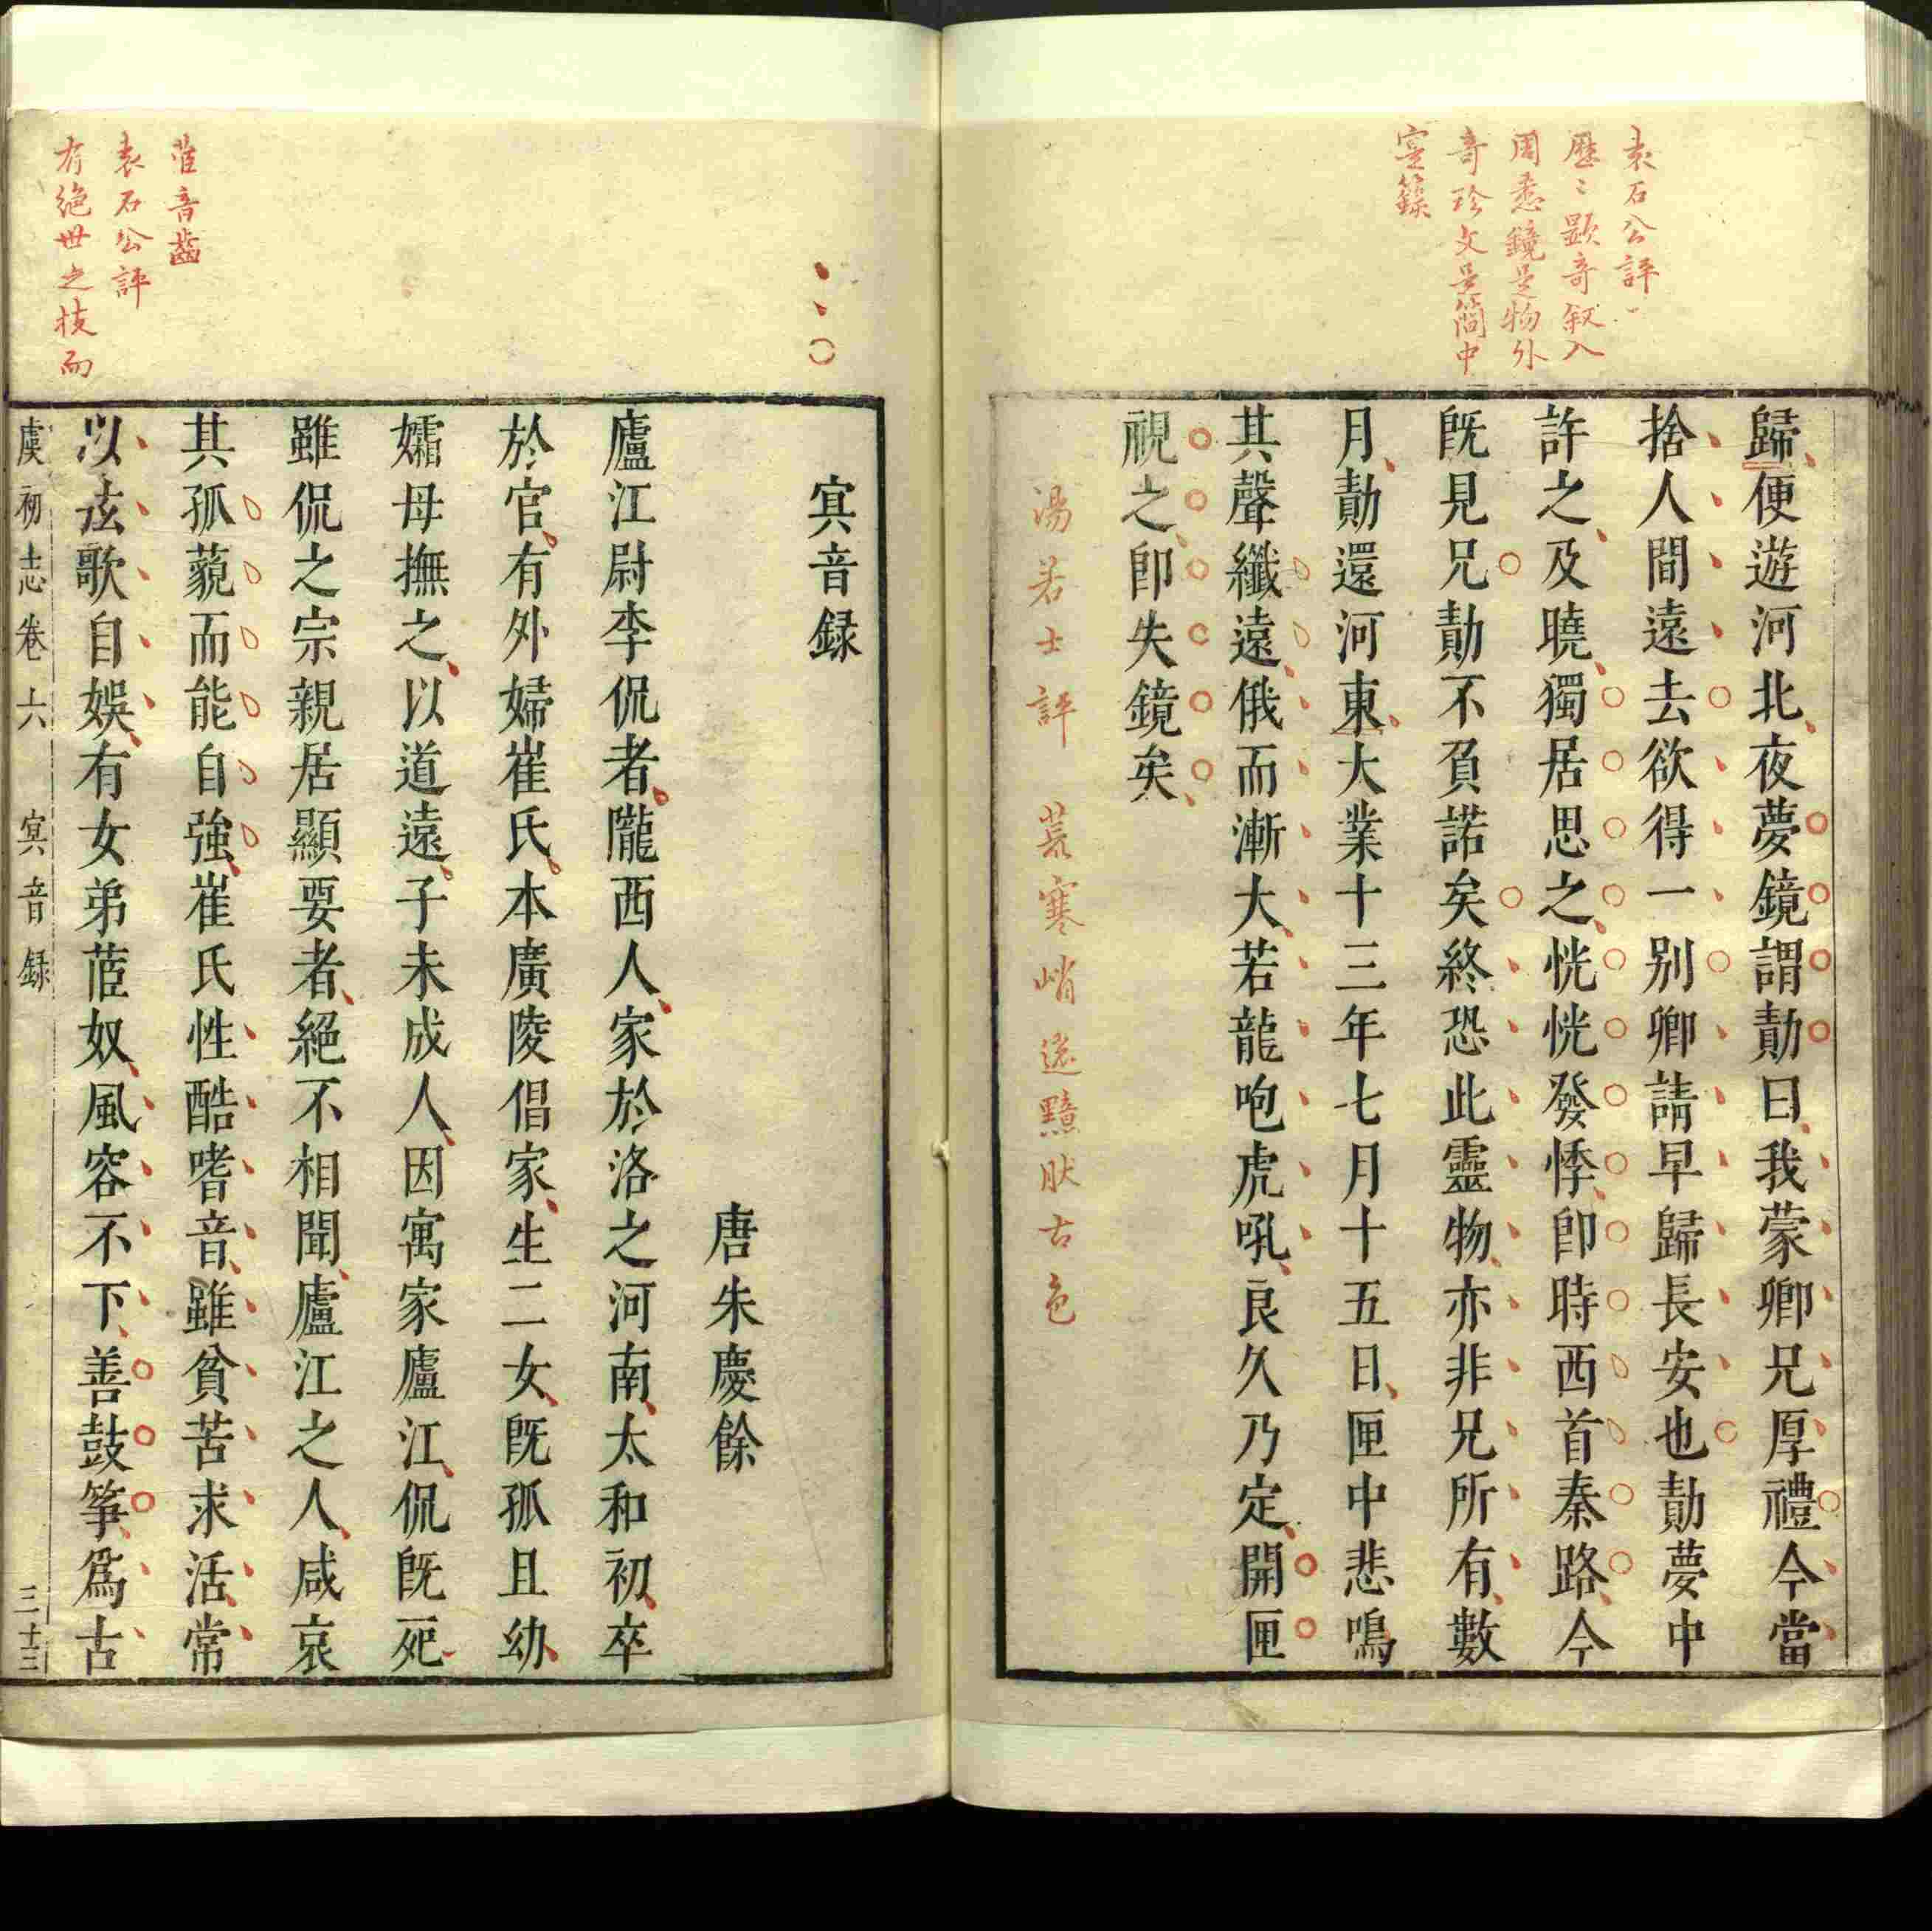 袁石公評
歷〻顯奇叙入
周悉鏡是物外
奇珍文是簡中
寔錄
歸便遊河北夜夢鏡謂勣曰我蒙卿兄厚禮今當
捨人間遠去欲得一別卿請早歸長安也勣夢中
許之及曉獨居思之恍恍發悸卽時西首秦路今
旣見兄勣不負諾矣終恐此靈物亦非兄所有數
月勣還河東大業十三年七月十五日匣中悲鳴
其聲纖遠俄而漸大若龍咆虎吼良久乃定開匣
視之卽失鏡矣
湯若士評 荒寒峭遠黯肰古色
冥音録
唐朱慶餘
廬江尉李侃者隴西人家於洛之河南太和初卒
於官有外婦崔氏本廣陵倡家生二女旣孤且幼
孀母撫之以道遠子未成人因寓家廬江侃旣死
雖侃之宗親居顯要者絕不相聞廬江之人咸哀
其孤藐而能自強崔氏性酷嗜音雖貧苦求活常
以弦歌自娛有女弟茝奴風容不下善鼓箏爲古
茝音齒
袁石公評
有絕世之技而
虞初志卷六 冥音録 三十三